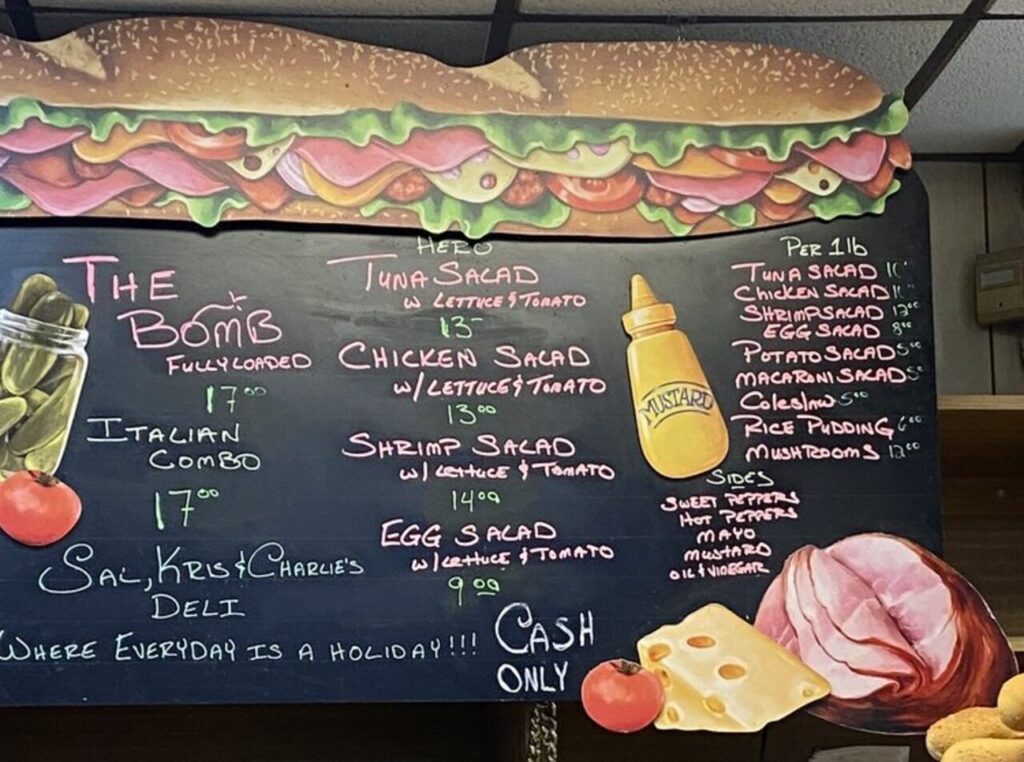 THE
BOMB
FULLY LOADED
17.00
ITALIAN
COMBO
17.00
SAL, KRIS & CHARLIE'S
DELI
WHERE EVERYDAY IS A HOLIDAY!!!
HERO
TUNA SALAD
W LETTUCE & TOMATO
13-
CHICKEN SALAD
W/LETTUCE & TOMATO
13.00
SHRIMP SALAD
W/LETTUCE & TOMATO
14.00
EGG SALAD
W/LETTUCE & TOMATO
9.00
CASH
ONLY
MUSTARD
PER 1 lb
TUNA SALAD
CHICKEN SALAD
SHRIMP SALAD 12.00
EGG SALAD 8.00
POTATO SALAD 5.00
MACARONI SALAD 5
COLESLAW 5.00
RICE PUDDING 6.00
MUSHROOMS 12.00
SIDES
SWEET PEPPERS
HOT PEPPERS
MAYO
MUSTARD
OIL & VIDEGAR